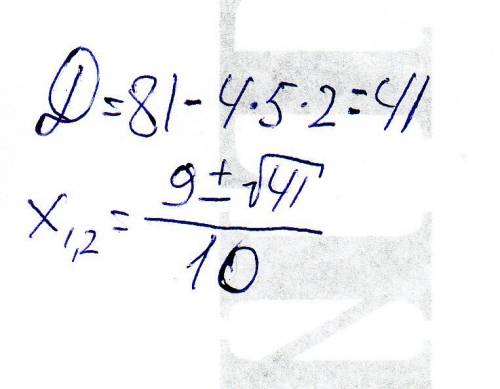 D=81-4·5·2=41
x₁,₂= (9±√41)/10